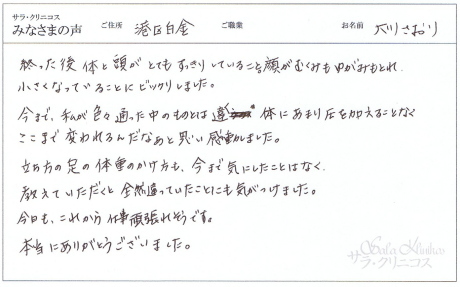 サラ・クリニコス
みなさまの声
ご住所 港区白金
ご職業
お名前 さおり
終った後 体と頭がとてもすっきりしていることと顔がむくみもゆがみもとれ
小さくなっていることにビックリしました。
今まで、私が色々通った中のものとは違く 体にあまり圧を加えることなく
ここまで変われるんだなあと思い感動しました。
立ち方の足の体重のかけ方も、今まで気にしたことはなく、
教えていただくと全然違っていたことにも気がつけました。
今日も、これから仕事頑張れそうです。
本当にありがとうございました。
Sala Klinikos
サラ・クリニコス